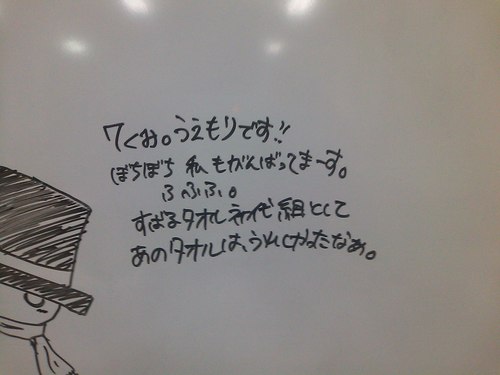 7くみ。うえもりです!!
ぼちぼち 私もがんばってまーす。
ふふふ。
すばるタオル初代組として
あのタオルは、うれしかったなぁ。